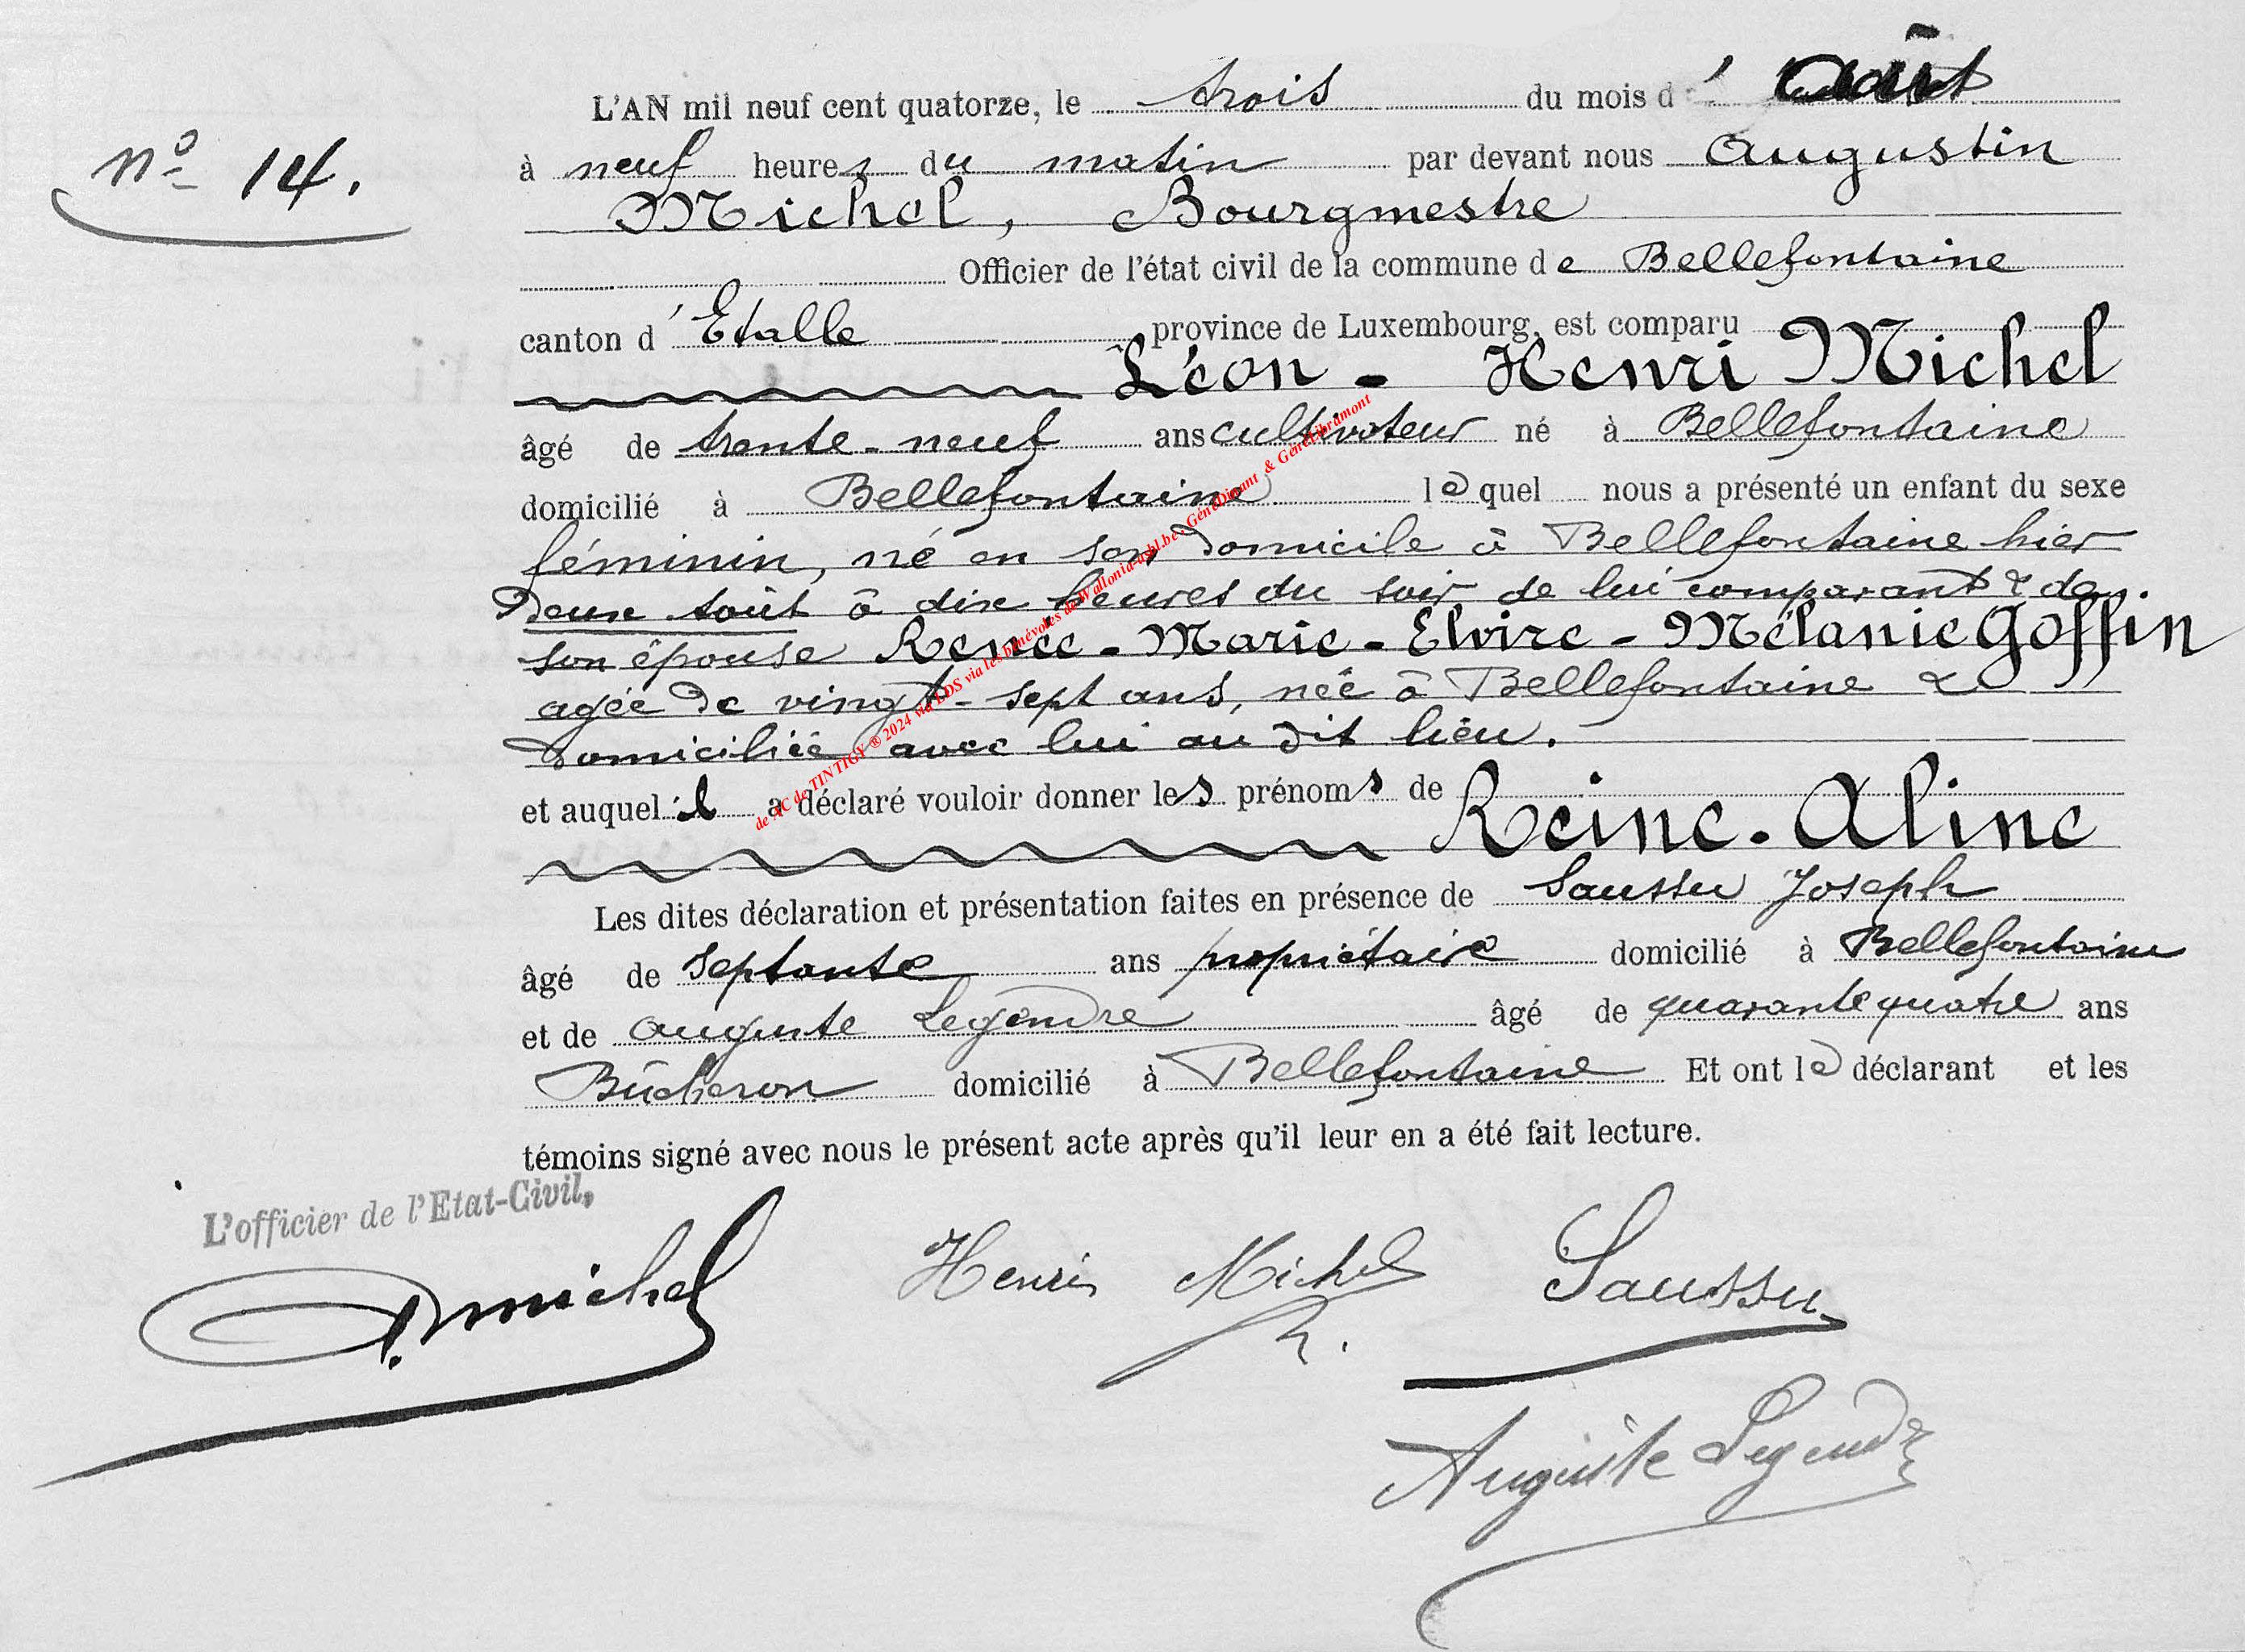 L'AN mil neuf cent quatorze, le trois du mois d' août
N° 14.
à neuf heures du matin par devant nous Augustin
Michel, Bourgmestre
Officier de l'état civil de la commune de Bellefontaine
canton d'Etalle province de Luxembourg, est comparu
Léon - Henri Michel
âgé de trente-neuf ans cultivateur né à Bellefontaine
domicilié à Bellefontaine lequel nous a présenté un enfant du sexe
féminin, né en son domicile à Bellefontaine hier
deux août à dix heures du soir de lui comparant & de
son épouse Renée - Marie - Elvire - Mélanie Goffin
agée de vingt-sept ans, née à Bellefontaine &
domiciliée avec lui au dit lieu.
et auquel il a déclaré vouloir donner les prénoms de
Reine - Aline
Les dites déclaration et présentation faites en présence de Saussu Joseph
âgé de septante ans propriétaire domicilié à Bellefontaine
et de Auguste Legendre âgé de quarante quatre ans
Bûcheron domicilié à Bellefontaine Et ont le déclarant et les
témoins signé avec nous le présent acte après qu'il leur en a été fait lecture.
L'officier de l'Etat-Civil,
A. Michel Henri Michel Saussu
Auguste Legendre
de AC de TINTIGY ® 2024 via LDS via les bénévoles de Wallonia-asbl.be - GénéDinant & GénéLibramont